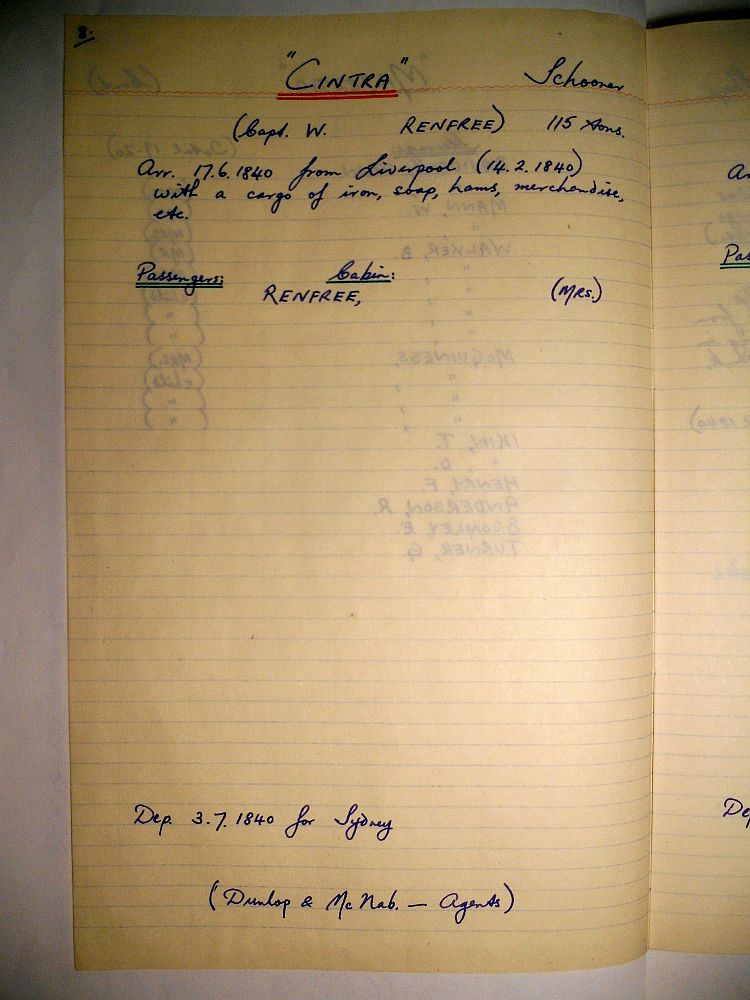 8.
"CINTRA" Schooner
(Capt. W. RENFREE) 115 tons.
Arr. 17.6.1840 from Liverpool (14.2.1840)
with a cargo of iron, soap, hams, merchandise,
etc.
Passengers: Cabin:
RENFREE, (MRS.)
Dep. 3.7.1840 for Sydney
(Dunlop & McNab. — Agents)